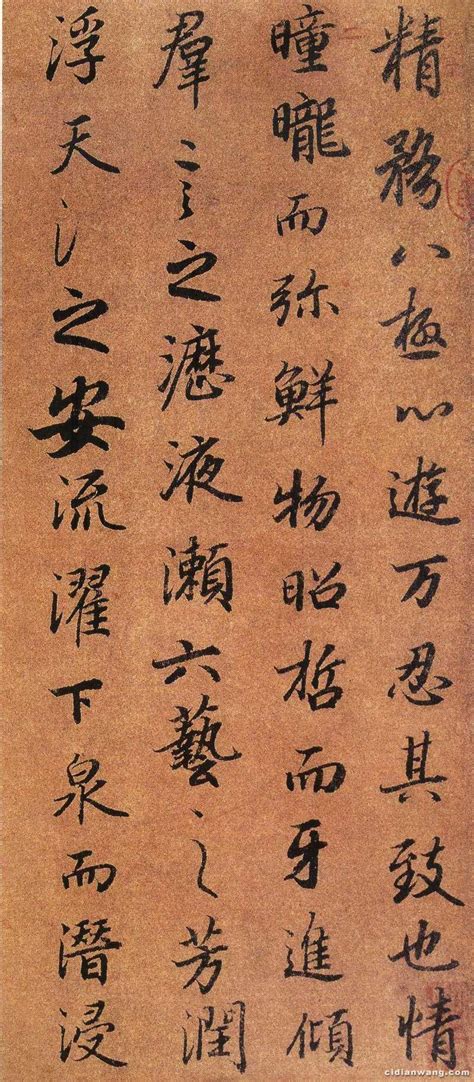 精務八極心遊万忍其致也情
曈曨而弥鮮物昭哲而牙進傾
羣言之瀝液瀨六藝之芳潤
浮天之安流濯下泉而潛浸
cidianwang.com